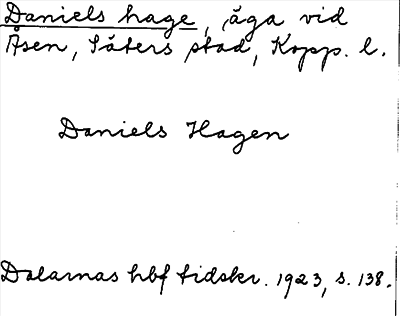 Daniels hage, äga vid
Åsen, Säters stad, Kopp. l.
Daniels Hagen
Dalarnas hbf tidskr. 1923, s. 138.